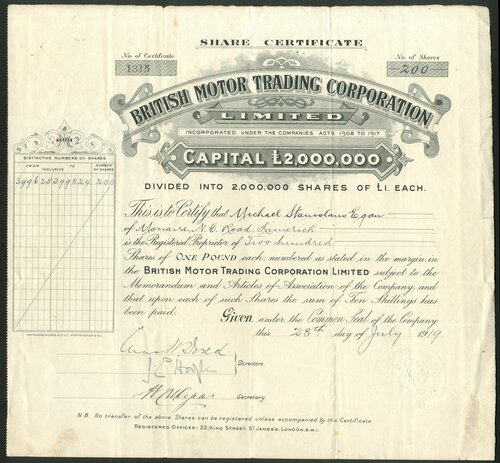 SHARE CERTIFICATE
No. of Certificate
1315
No. of Shares
200
BRITISH MOTOR TRADING CORPORATION
LIMITED
INCORPORATED UNDER THE COMPANIES ACTS 1908 TO 1917
CAPITAL £2,000,000
DIVIDED INTO 2,000,000 SHARES OF £1. EACH.
DISTINCTIVE NUMBERS OF SHARES
FROM INCLUSIVE TO
NUMBER OF SHARES
399625 399824 200
This is to Certify that Michael Stanislaus Egan
of Monaire, N.C. Road, Limerick
is the Registered Proprietor of Two hundred
Shares of ONE POUND each, numbered as stated in the margin in
the BRITISH MOTOR TRADING CORPORATION LIMITED subject to the
Memorandum and Articles of Association of the Company, and
that upon each of such Shares the sum of Ten Shillings has
been paid.
Given under the Common Seal of the Company
this 28th day of July 1919.
Directors.
Secretary.
N.B. No transfer of the above Shares can be registered unless accompanied by this Certificate.
REGISTERED OFFICES: 22, KING STREET, ST JAMES'S, LONDON, S.W.1.